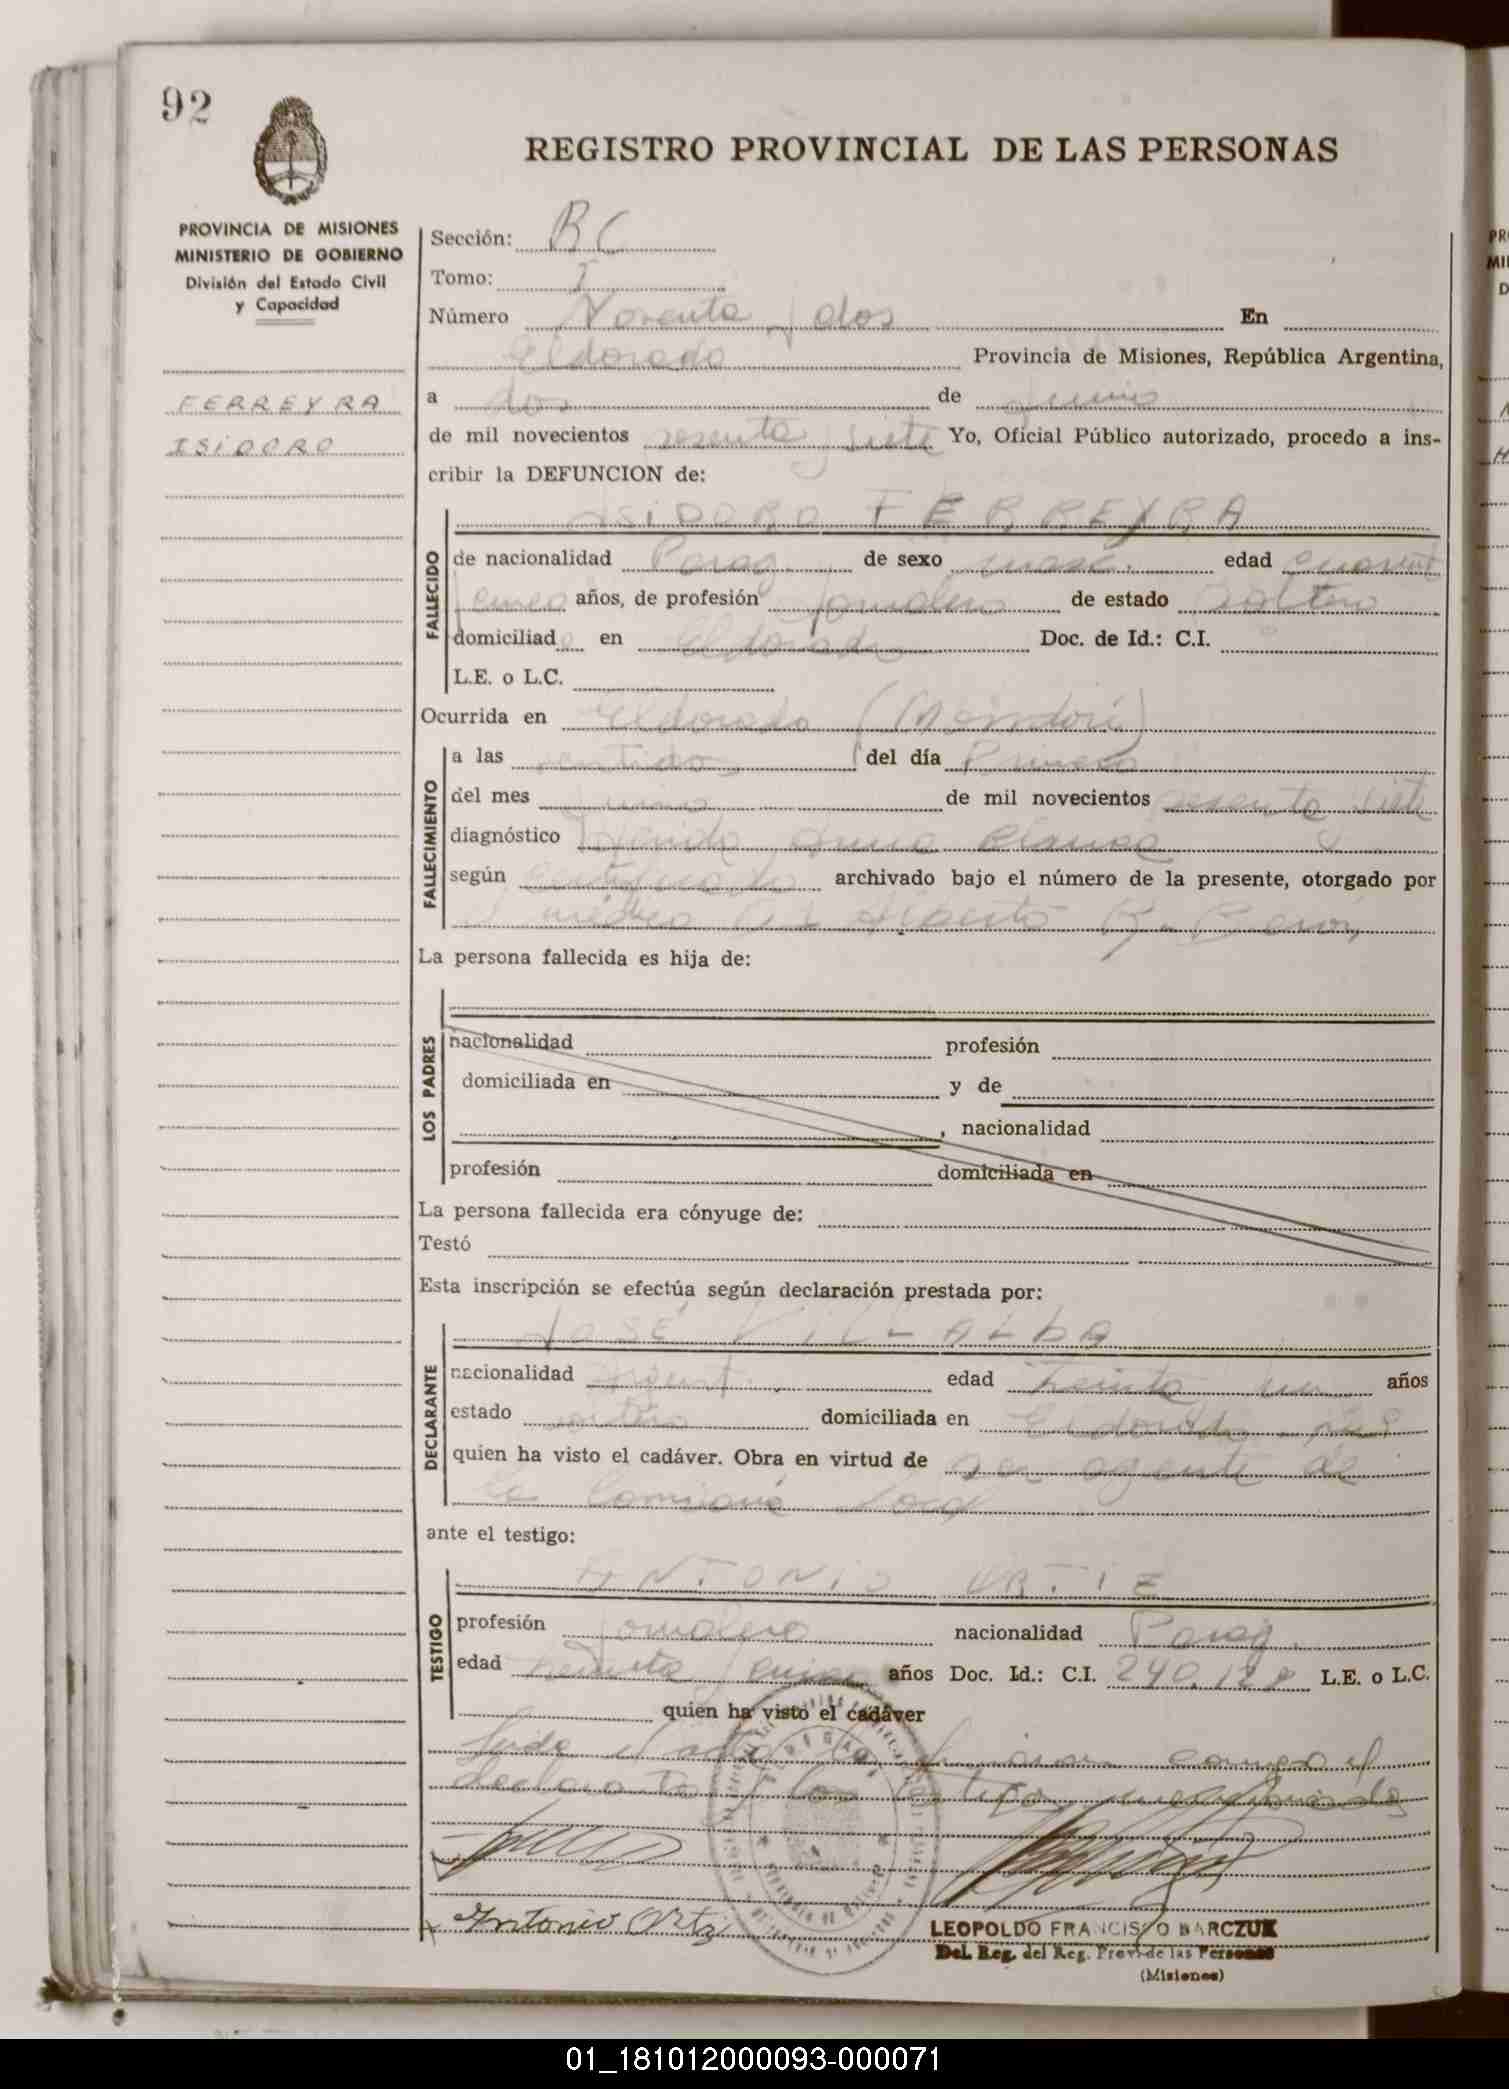 92
REGISTRO PROVINCIAL DE LAS PERSONAS
PROVINCIA DE MISIONES
MINISTERIO DE GOBIERNO
División del Estado Civil
y Capacidad
FERREYRA
ISIDORO
Sección: BC
Tomo: I
Número Noventa y dos En
Eldorado Provincia de Misiones, República Argentina,
a dos de Junio
de mil novecientos sesenta y siete Yo, Oficial Público autorizado, procedo a ins-
cribir la DEFUNCION de:
ISIDORO FERREYRA
FALLECIDO
de nacionalidad Parag. de sexo masc. edad cuarent
y cinco años, de profesión Jornalero de estado soltero
domiciliado en Eldorado Doc. de Id.: C.I.
L.E. o L.C.
Ocurrida en Eldorado
FALLECIMIENTO
a las ventidos del día Primero
del mes Junio de mil novecientos sesenta siete
diagnóstico Herida Arma Blanca
según certificado archivado bajo el número de la presente, otorgado por
el médico Alberto K.
La persona fallecida es hija de:
LOS PADRES
nacionalidad profesión
domiciliada en y de
, nacionalidad
profesión domiciliada en
La persona fallecida era cónyuge de:
Testó
Esta inscripción se efectúa según declaración prestada por:
DECLARANTE
JOSÉ VILLALBA
nacionalidad Argent. edad Treinta un años
estado soltero domiciliada en Eldorado
quien ha visto el cadáver. Obra en virtud de ser agente de
la local
ante el testigo:
TESTIGO
ANTONIO ORTIZ
profesión Jornalero nacionalidad Parag.
edad años Doc. Id.: C.I. L.E. o L.C.
quien ha visto el cadáver
Leida el acta la conmigo el
declarante y los testigo mencionados
Antonio Ortiz
LEOPOLDO FRANCISCO BARCZUK
Del. Reg. del Reg. Prov. de las Personas
(Misiones)
01_181012000093-000071